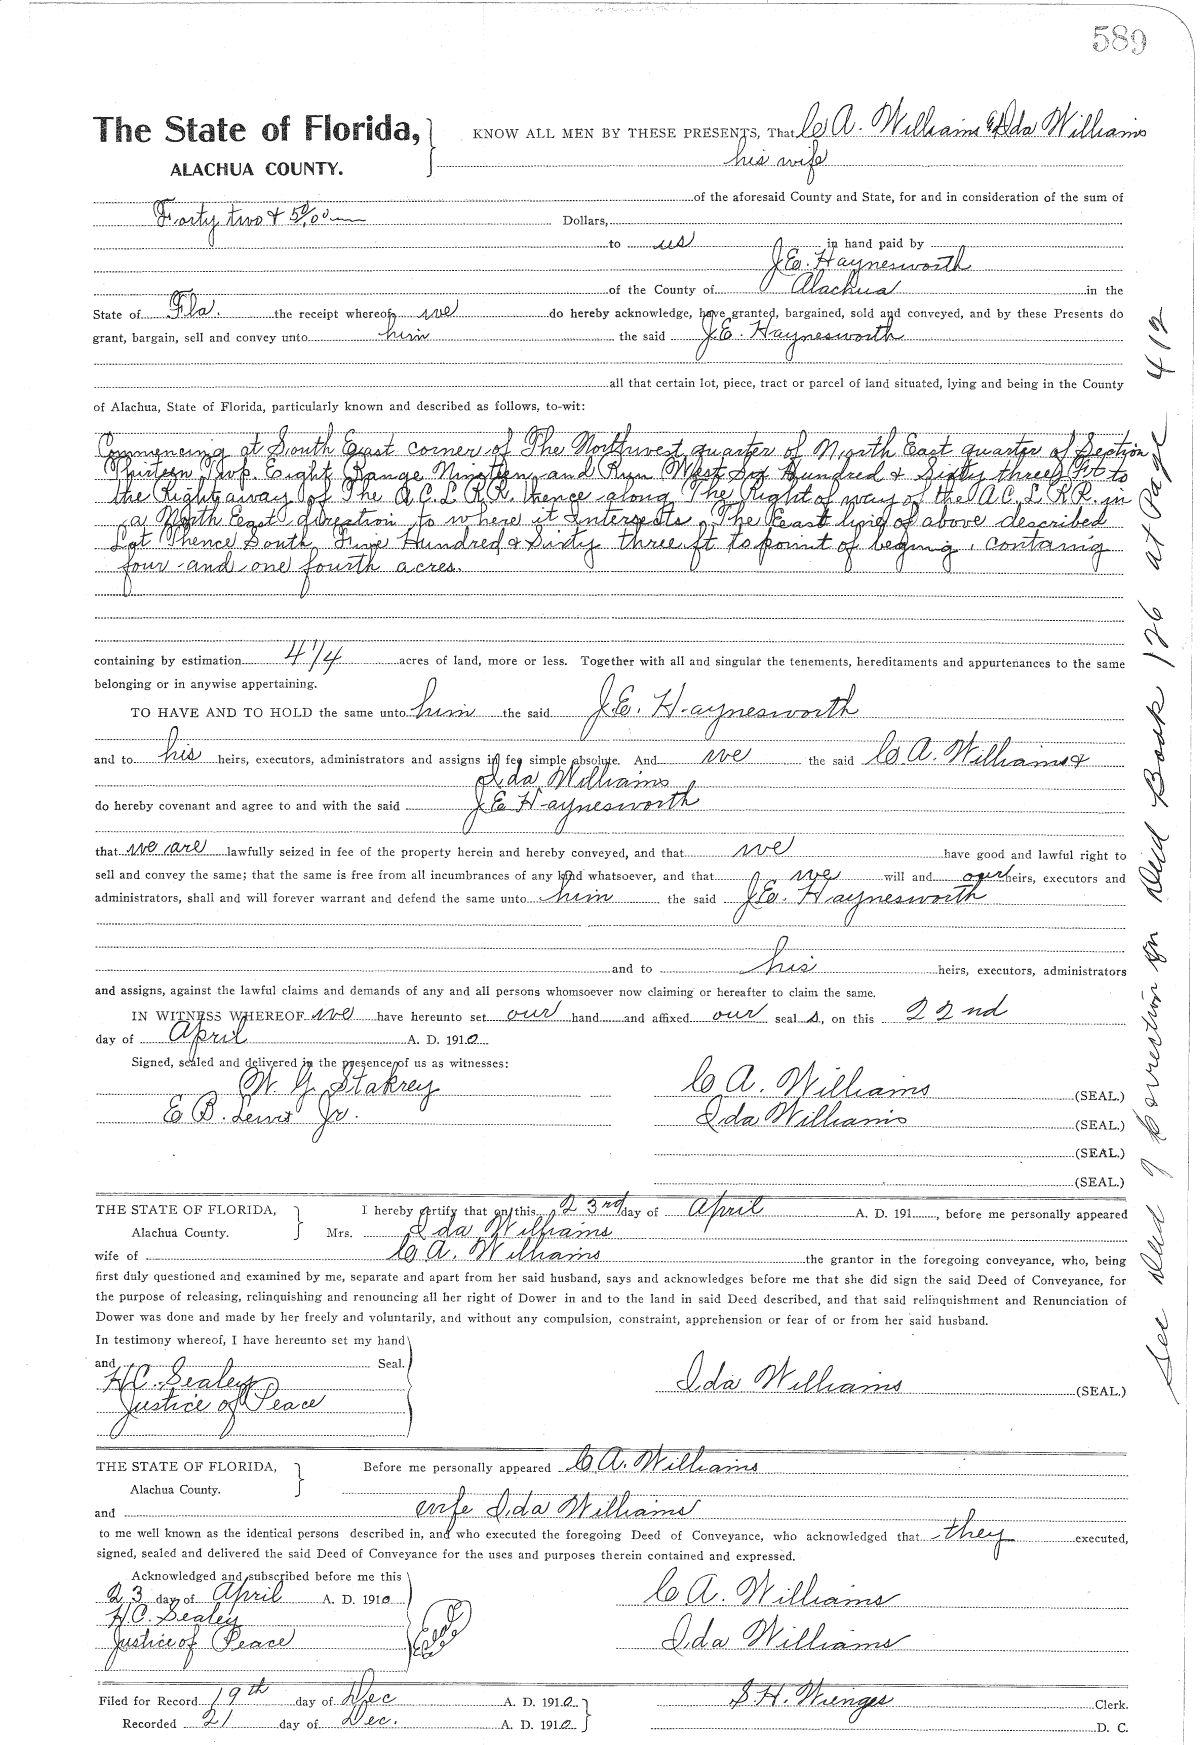 589
The State of Florida,
ALACHUA COUNTY.
KNOW ALL MEN BY THESE PRESENTS, That C A. Williams & Ida Williams
his wife
of the aforesaid County and State, for and in consideration of the sum of
Forty two & 50/00 Dollars,
to us in hand paid by
J.E. Haynesworth
of the County of Alachua in the
State of Fla. the receipt whereof we do hereby acknowledge, have granted, bargained, sold and conveyed, and by these Presents do
grant, bargain, sell and convey unto him the said J.E. Haynesworth
all that certain lot, piece, tract or parcel of land situated, lying and being in the County
of Alachua, State of Florida, particularly known and described as follows, to-wit:
Commencing at South East corner of The Northwest quarter of North East quarter of Section
Thirteen Twp. Eight Range Nineteen and Run West Six Hundred & Sixty three Ft to
the Right away of The A.C.L.R.R. thence along The Right of way of the A.C.L.R.R. in
a North East direction to where it Intersects The East line of above described
Lot Thence South Five Hundred & Sixty three ft to point of beging, containg
four and one fourth acres.
containing by estimation 4 1/4 acres of land, more or less. Together with all and singular the tenements, hereditaments and appurtenances to the same
belonging or in anywise appertaining.
TO HAVE AND TO HOLD the same unto him the said J.E. Haynesworth
and to his heirs, executors, administrators and assigns in fee simple absolute. And we the said C A. Williams &
Ida Williams
do hereby covenant and agree to and with the said J E Haynesworth
that we are lawfully seized in fee of the property herein and hereby conveyed, and that we have good and lawful right to
sell and convey the same; that the same is free from all incumbrances of any kind whatsoever, and that we will and our heirs, executors and
administrators, shall and will forever warrant and defend the same unto him the said J.E. Haynesworth
and to his heirs, executors, administrators
and assigns, against the lawful claims and demands of any and all persons whomsoever now claiming or hereafter to claim the same.
IN WITNESS WHEREOF we have hereunto set our hand and affixed our seal s, on this 22nd
day of April A. D. 1910
Signed, sealed and delivered in the presence of us as witnesses:
C A. Williams (SEAL.)
E B. Lewis Jr. Ida Williams (SEAL.)
(SEAL.)
(SEAL.)
THE STATE OF FLORIDA,
Alachua County.
I hereby certify that on this 23rd day of April A. D. 191 , before me personally appeared
Mrs. Ida Williams
wife of C A. Williams the grantor in the foregoing conveyance, who, being
first duly questioned and examined by me, separate and apart from her said husband, says and acknowledges before me that she did sign the said Deed of Conveyance, for
the purpose of releasing, relinquishing and renouncing all her right of Dower in and to the land in said Deed described, and that said relinquishment and Renunciation of
Dower was done and made by her freely and voluntarily, and without any compulsion, constraint, apprehension or fear of or from her said husband.
In testimony whereof, I have hereunto set my hand
and Seal.
H.C. Sealey
Justice of Peace
Ida Williams (SEAL.)
THE STATE OF FLORIDA,
Alachua County.
Before me personally appeared C A. Williams
and wife Ida Williams
to me well known as the identical persons described in, and who executed the foregoing Deed of Conveyance, who acknowledged that they executed,
signed, sealed and delivered the said Deed of Conveyance for the uses and purposes therein contained and expressed.
Acknowledged and subscribed before me this
23 day of April A. D. 1910
H.C. Sealey
Justice of Peace
Seal
C A. Williams
Ida Williams
Filed for Record 19th day of Dec A. D. 1910
Recorded 21 day of Dec. A. D. 1910
S.H. Wienges Clerk.
D. C.
See Deed of Correction in Deed Book 126 at Page 412